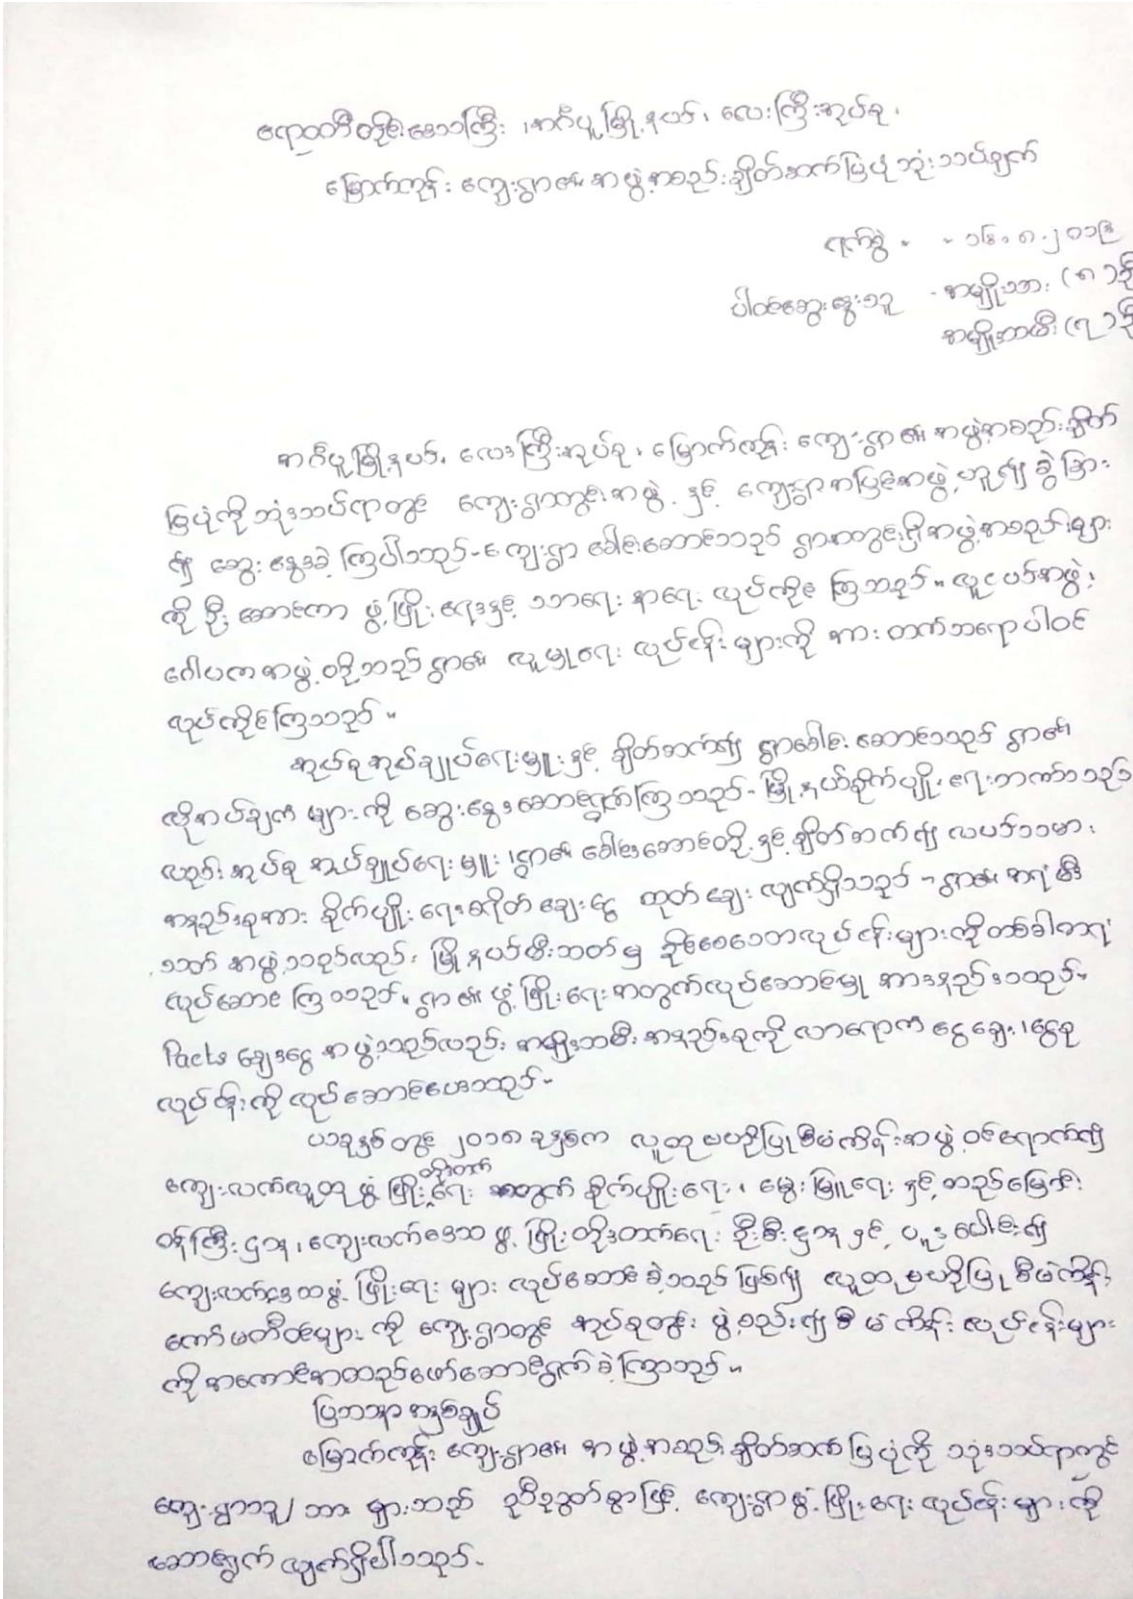 ဧရာဝတီတိုင်းဒေသကြီး ၊အင်္ဂပူမြို့နယ်၊ လေးကြီးအုပ်စု ၊
မြောက်ကုန်း ကျေးရွာ၏ အဖွဲ့အစည်းချိတ်ဆက်ပြပုံ သုံးသပ်ချက်
ရက်စွဲ - - ၁၆.၈.၂၀၁၉
ပါဝင်ဆွေးနွေးသူ - အမျိုးသား (၈)ဦး
အမျိုးသမီး (၇)ဦး
အင်္ဂပူမြို့နယ်၊ လေးကြီးအုပ်စု ၊ မြောက်ကုန်း ကျေးရွာ၏ အဖွဲ့အစည်းချိတ်
ပြပုံကိုသုံးသပ်ရာတွင် ကျေးရွာတွင်းအဖွဲ့ နှင့် ကျေးရွာအပြင်အဖွဲ့ဟူ၍ ခွဲခြား
၍ ဆွေးနွေးခဲ့ကြပါသည်-ကျေးရွာ ခေါင်းဆောင်သည် ရွာအတွင်းရှိအဖွဲ့အစည်းများ
ကို ဦးဆောင်ကာ ဖွံ့ဖြိုးရေးနှင့် သာရေး နာရေး လုပ်ကိုင်ကြသည်။ လူငယ်အဖွဲ့၊
ဂေါပကအဖွဲ့တို့သည်ရွာ၏ လူမှုရေး လုပ်ငန်းများကို အားတက်သရောပါဝင်
လုပ်ကိုင်ကြသည် ။
အုပ်စုအုပ်ချုပ်ရေးမှူးနှင့် ချိတ်ဆက်၍ ရွာခေါင်းဆောင်သည် ရွာ၏
လိုအပ်ချက် များကို ဆွေးနွေးဆောင်ရွက်ကြသည်- မြို့နယ်စိုက်ပျိုးရေးဘဏ်သည်
လည်း အုပ်စု အုပ်ချုပ်ရေးမှူး ၊ရွာ၏ ခေါင်းဆောင်တို့နှင့်ချိတ်ဆက်၍ လယ်သမား
အနည်းစုအား စိုက်ပျိုးရေးစရိတ်ချေးငွေ ထုတ်ချေး လျက်ရှိသည် - ရွာ၏ အရံမီး
သတ် အဖွဲ့သည်လည်း မြို့နယ်မီးသတ်မှ ခိုင်းစေသောလုပ်ငန်းများကိုတစ်ခါတရံ
လုပ်ဆောင်ကြသည်။ ရွာ၏ ဖွံ့ဖြိုးရေးအတွက်လုပ်ဆောင်မှု အားနည်းသည်-
Pacts ချေးငွေအဖွဲ့သည်လည်း အမျိုးသမီးအနည်းစုကို လာရောက် ငွေချေး၊ငွေစု
လုပ်ငန်းကို လုပ်ဆောင်ပေးသည်-
ယခုနှစ်တွင် ၂၀၁၈ ခုနှစ်က လူထုဗဟိုပြုစီမံကိန်းအဖွဲ့ ဝင်ရောက်၍
ကျေးလက်လူထုဖွံ့ဖြိုးတိုးတက်ရေး အတွက် စိုက်ပျိုးရေး ၊ မွေးမြူရေး နှင့် ဆည်မြောင်း
ဝန်ကြီးဌာန ၊ကျေးလက်ဒေသ ဖွံ့ဖြိုးတိုးတက်ရေး ဦးစီးဌာန နှင့် ပူးပေါင်း၍
ကျေးလက်ဒေသဖွံ့ဖြိုးရေး များ လုပ်ဆောင်ခဲ့သည် ဖြစ်၍ လူထုဗဟိုပြုစီမံကိန်း
ကော်မတီဝင်များ ကို ကျေးရွာတွင် အုပ်စုတွင်း ဖွဲ့စည်း၍ စီမံကိန်းလုပ်ငန်းများ
ကိုအကောင်အထည်ဖော်ဆောင်ရွက်ခဲ့ကြသည် ။
ပြဿနာ အနှစ်ချုပ်
မြောက်ကုန်း ကျေးရွာ၏ အဖွဲ့အစည်းချိတ်ဆက်ပြပုံကို သုံးသပ်ရာတွင်
ကျေးရွာသူ/သား များသည် ညီညွတ်စွာဖြင့် ကျေးရွာဖွံ့ဖြိုးရေး လုပ်ငန်းများကို
ဆောင်ရွက် လျက်ရှိပါသည်-